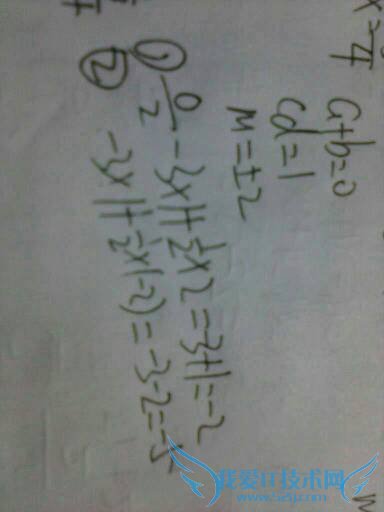 a+b=0
cd=1
M=±2
① 0/2 -3×1+1/2×2=-3+1=-2
② -3×1+1/2×(-2)=-3-2=-5
我爱IT技术网
www.52ij.com